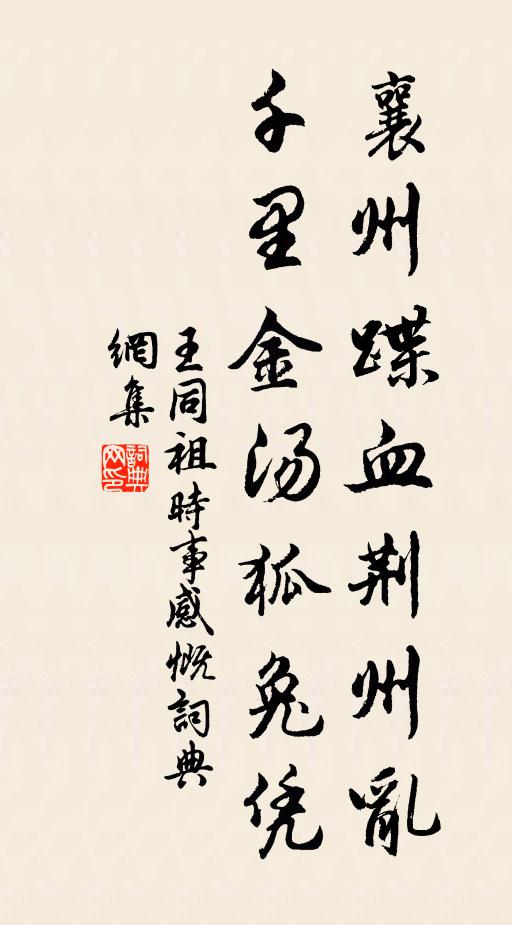 襄州蹀血荆州亂
千里金汤狐兔凭
王同祖時事感慨詞典
網集
詞典網印